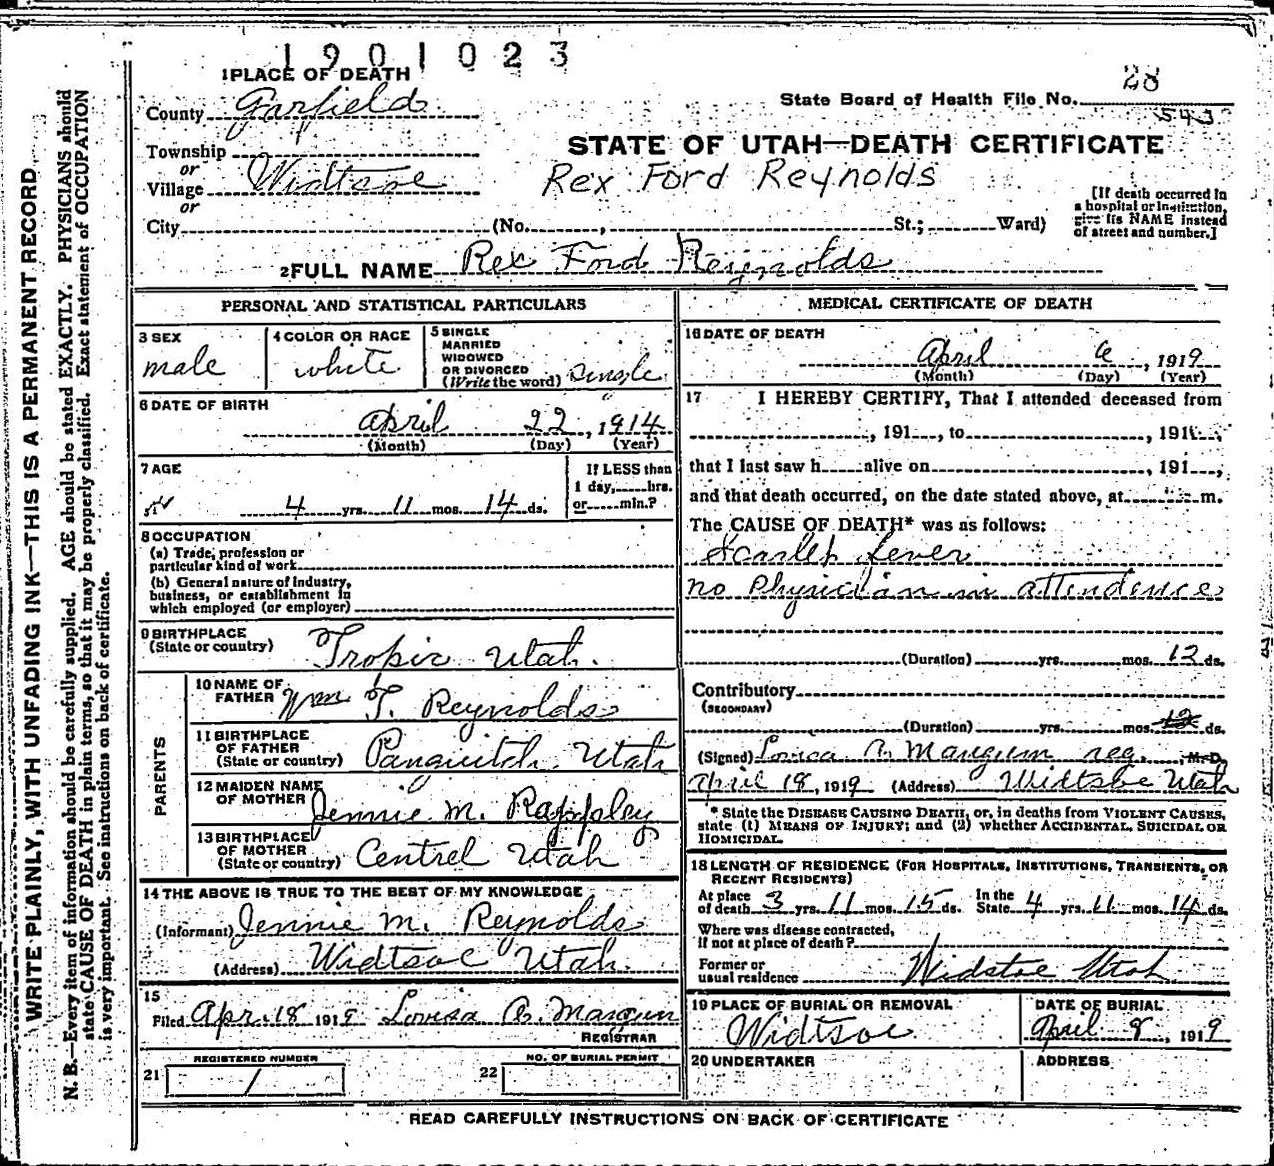 1901023
1 PLACE OF DEATH
County Garfield
Township
or
Village Widtsoe
or
City (No. , St.; Ward)
28
State Board of Health File No.
543
STATE OF UTAH—DEATH CERTIFICATE
Rex Ford Reynolds
[If death occurred in
a hospital or institution,
give its NAME instead
of street and number.]
2 FULL NAME Rex Ford Reynolds
PERSONAL AND STATISTICAL PARTICULARS
3 SEX
male
4 COLOR OR RACE
white
5 SINGLE
MARRIED
WIDOWED
OR DIVORCED
(Write the word) single
6 DATE OF BIRTH
April 22, 1914
(Month) (Day) (Year)
7 AGE
4 yrs. 11 mos. 14 ds.
If LESS than
1 day, hrs.
or min.?
8 OCCUPATION
(a) Trade, profession or
particular kind of work
(b) General nature of industry,
business, or establishment in
which employed (or employer)
9 BIRTHPLACE
(State or country) Tropic Utah.
PARENTS
10 NAME OF
FATHER Wm T. Reynolds
11 BIRTHPLACE
OF FATHER
(State or country) Panguitch Utah
12 MAIDEN NAME
OF MOTHER Jennie M. Rappley
13 BIRTHPLACE
OF MOTHER
(State or country) Centrel Utah
14 THE ABOVE IS TRUE TO THE BEST OF MY KNOWLEDGE
(Informant) Jennie M. Reynolds
(Address) Widtsoe Utah.
15
Filed Apr. 18 1919 Lovisa A. Mangum
REGISTRAR
REGISTERED NUMBER
21 1
NO. OF BURIAL PERMIT
22
MEDICAL CERTIFICATE OF DEATH
16 DATE OF DEATH
April 6, 1919
(Month) (Day) (Year)
17 I HEREBY CERTIFY, That I attended deceased from
, 191 , to , 191 ,
that I last saw h alive on , 191 ,
and that death occurred, on the date stated above, at m.
The CAUSE OF DEATH* was as follows:
Scarlet fever
no Physician in attendence
(Duration) yrs. mos. 12 ds.
Contributory
(SECONDARY)
(Duration) yrs. mos. 12 ds.
(Signed) Lovica A. Mangum reg. M.D.
April 18, 1919 (Address) Widtsoe Utah
* State the DISEASE CAUSING DEATH, or, in deaths from VIOLENT CAUSES,
state (1) MEANS OF INJURY; and (2) whether ACCIDENTAL, SUICIDAL OR
HOMICIDAL.
18 LENGTH OF RESIDENCE (FOR HOSPITALS, INSTITUTIONS, TRANSIENTS, OR
RECENT RESIDENTS)
At place
of death 3 yrs. 11 mos. 15 ds. In the
State 4 yrs. 11 mos. 14 ds.
Where was disease contracted,
if not at place of death?
Former or
usual residence Widstoe Utah
19 PLACE OF BURIAL OR REMOVAL
Widtsoe
DATE OF BURIAL
April 8, 1919
20 UNDERTAKER
ADDRESS
READ CAREFULLY INSTRUCTIONS ON BACK OF CERTIFICATE
WRITE PLAINLY, WITH UNFADING INK—THIS IS A PERMANENT RECORD
N. B.—Every item of information should be carefully supplied. AGE should be stated EXACTLY. PHYSICIANS should
state CAUSE OF DEATH in plain terms, so that it may be properly classified. Exact statement of OCCUPATION
is very important. See instructions on back of certificate.